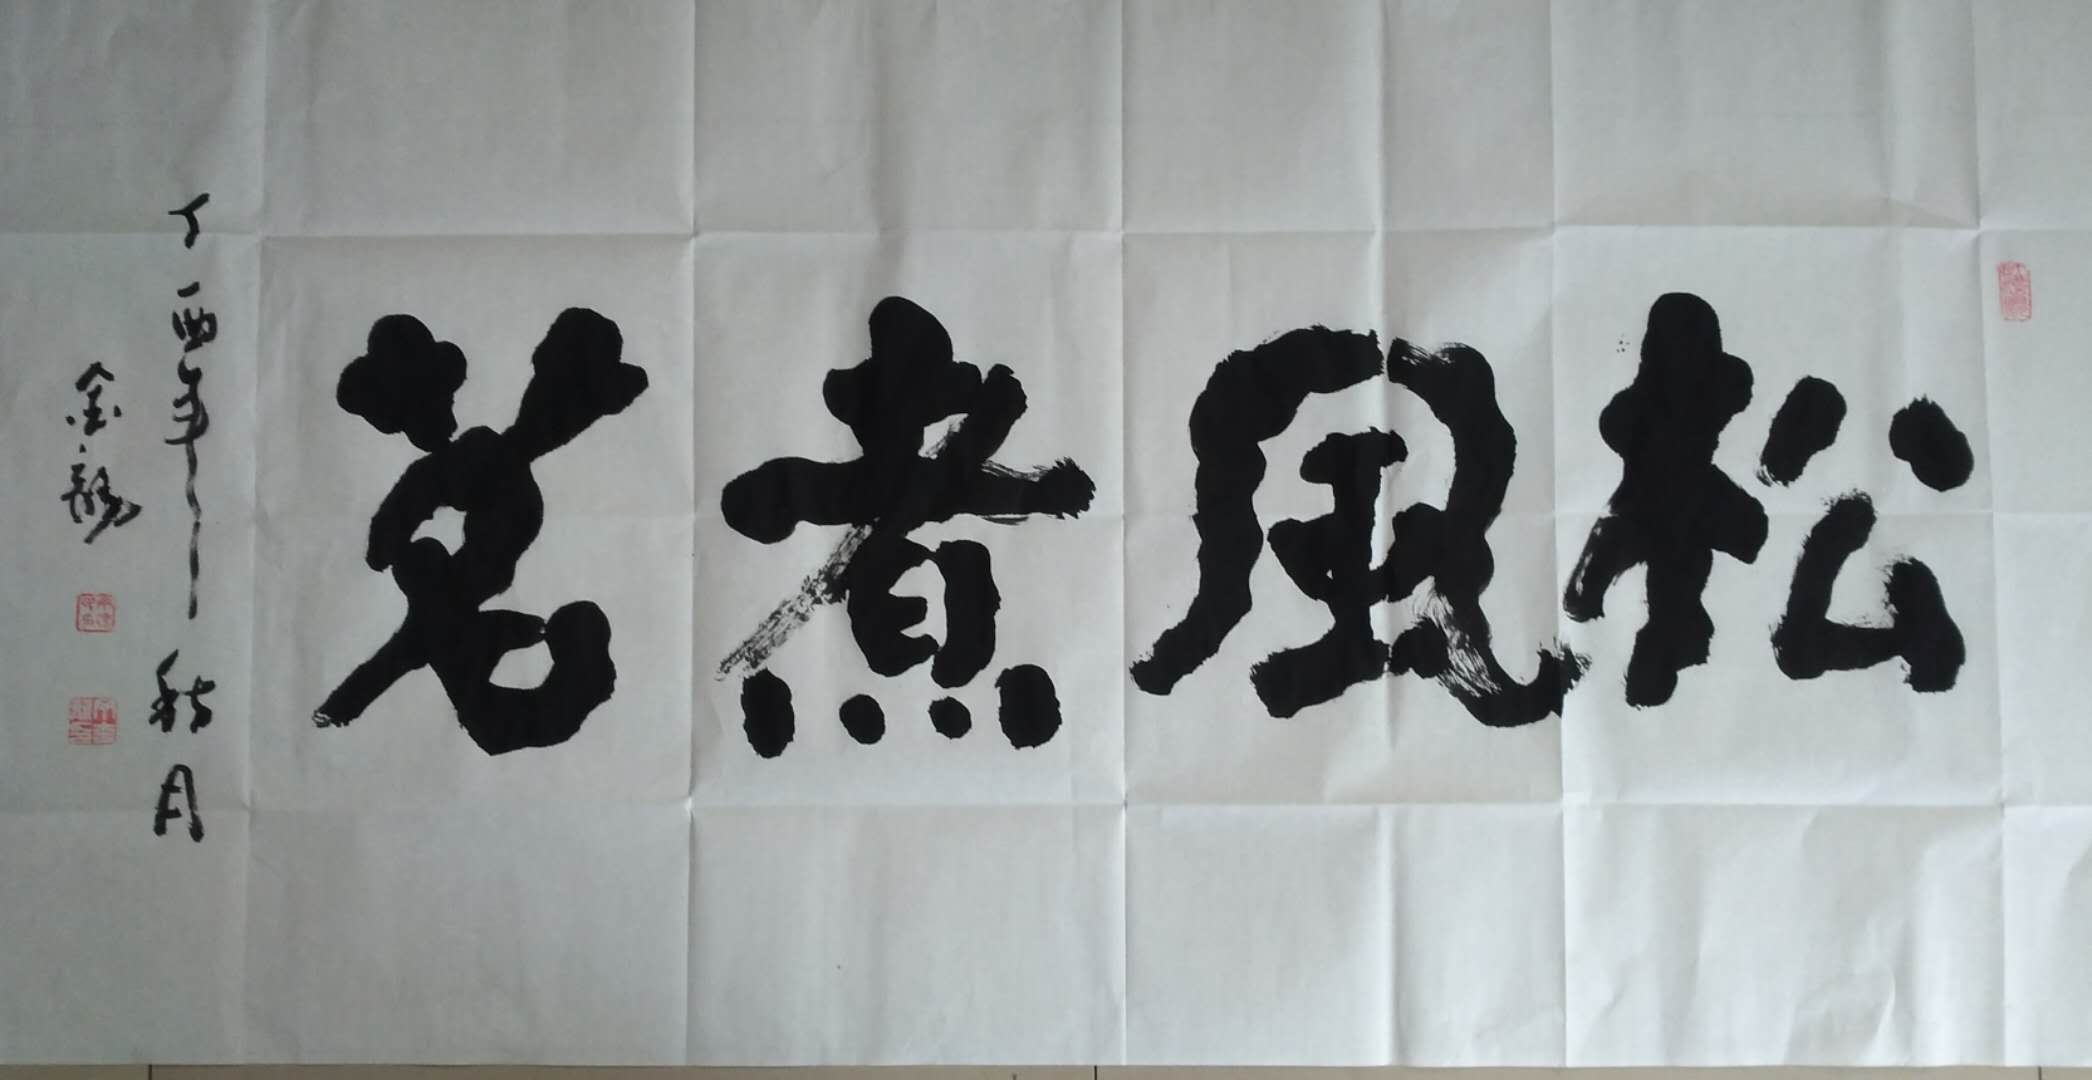 松風煮茗
丁酉年秋月
金龍